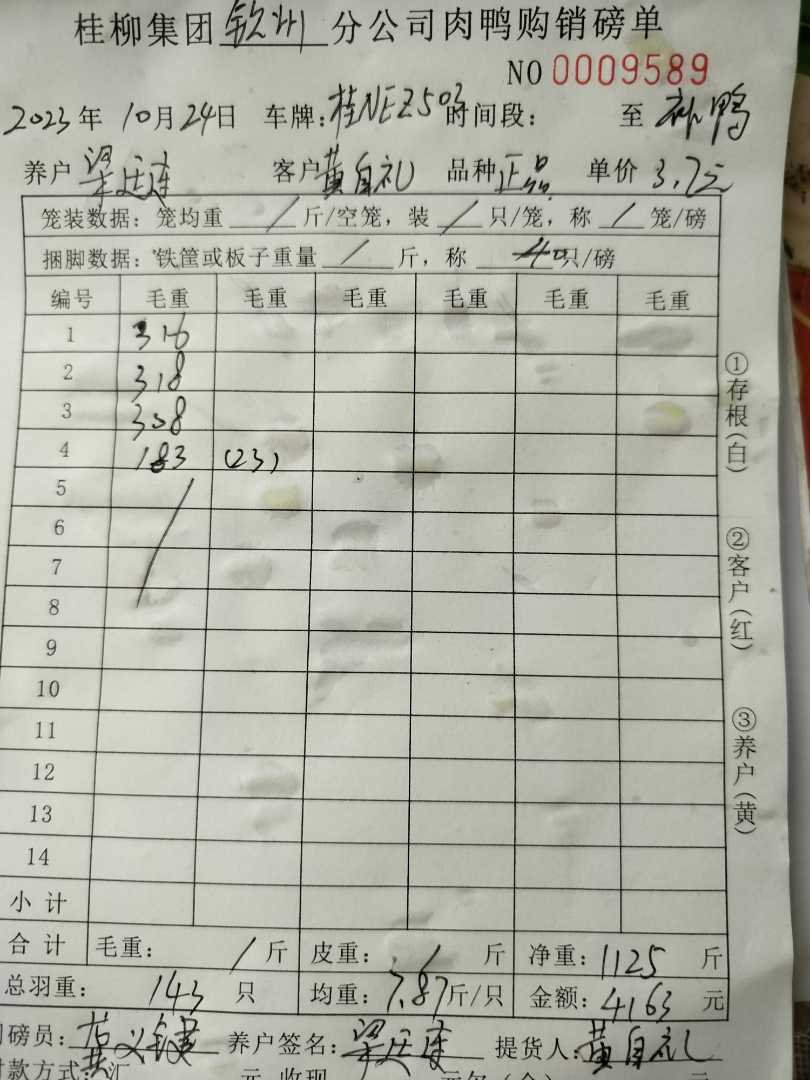 桂柳集团 钦州 分公司肉鸭购销磅单
NO 0009589
2023年 10月24日 车牌:桂NEZ503 时间段: 至 补鸭
养户 梁廷连 客户 黄自礼 品种 正品 单价 3.7元
笼装数据:笼均重 / 斤/空笼,装 / 只/笼,称 / 笼/磅
捆脚数据:铁筐或板子重量 / 斤,称 40 只/磅
编号 毛重 毛重 毛重 毛重 毛重 毛重
1 316
2 318
3 308
4 183 (23)
5
6
7
8
9
10
11
12
13
14
小计
合计 毛重: / 斤 皮重: / 斤 净重: 1125 斤
总羽重: 143 只 均重: 7.87 斤/只 金额: 4163 元
磅员: 养户签名: 梁廷连 提货人: 黄自礼
款方式: 汇 元 收现 元欠(余) 元
①存根(白)
②客户(红)
③养户(黄)